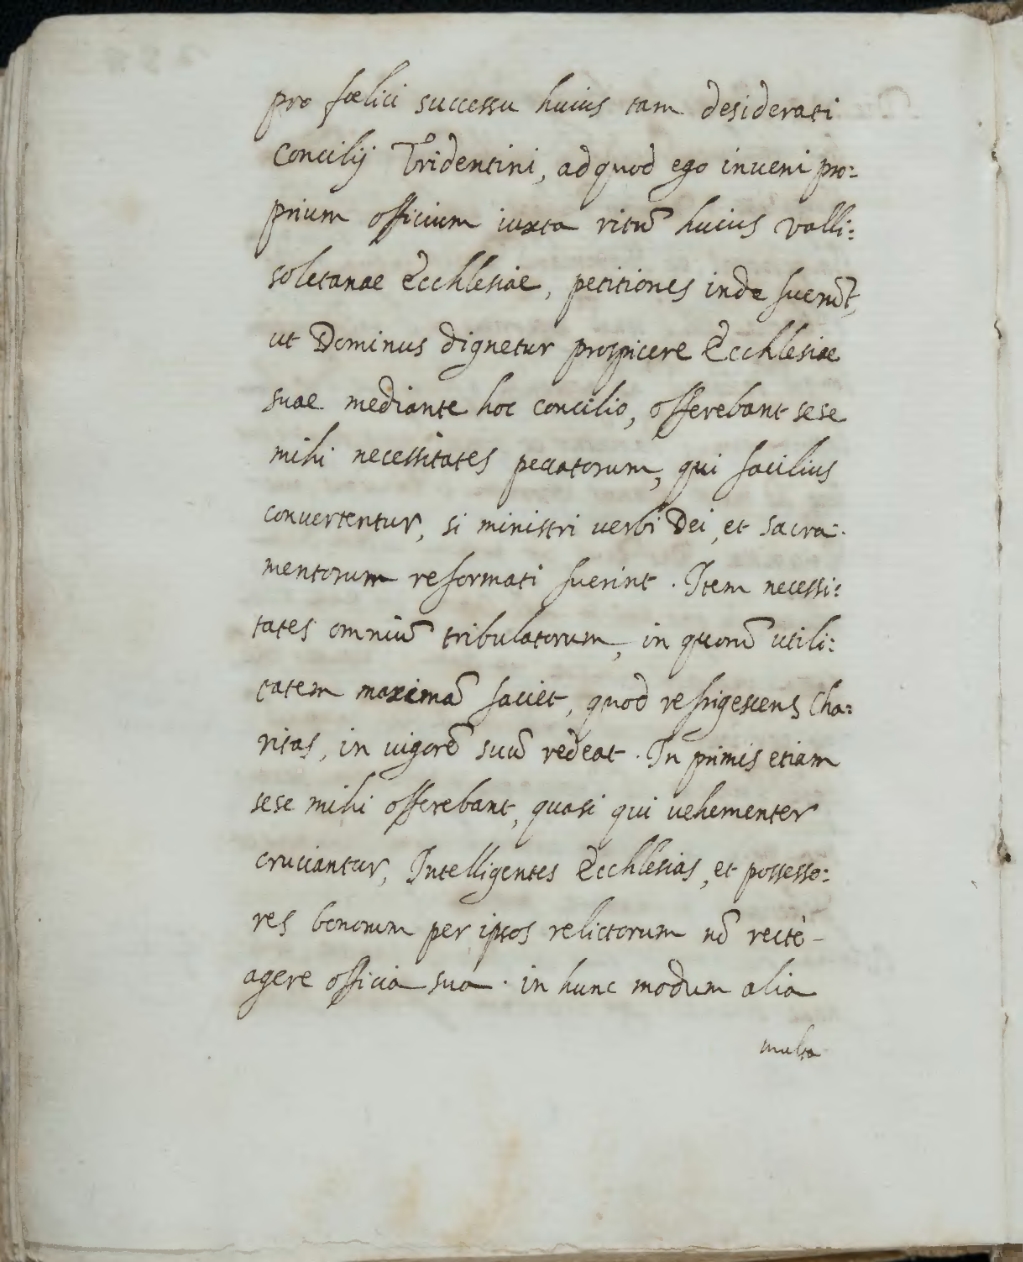 pro fœlici successu huius tam desiderati
Concilij Tridentini, ad quod ego inueni pro:
prium officium iuxta ritũ huius valli:
soletanae Ecchlesiae, petitiones inde fuerũt,
ut Dominus dignetur prospicere Ecchlesiae
suae mediante hoc concilio, offerebant sese
mihi necessitates peccatorum, qui facilius
conuertentur, si ministri uerbi Dei, et sacra:
mentorum reformati fuerint. Item necessi:
tates omniũ tribulatorum, in quorũ utili:
tatem maximã faciet, quod refrigescens Cha:
ritas, in uigorẽ suũ redeat. In primis etiam
sese mihi offerebant, quasi qui uehementer
cruciantur, Intelligentes Ecchlesias, et possesso:
res bonorum per ipsos relictorum nõ rectè
agere officia sua. in hunc modum alia
multa